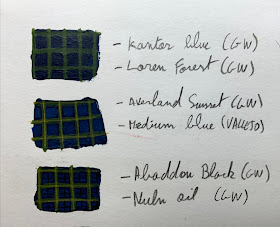 - Kantor blue (GW)
- Loren Forest (GW)
- Averland Sunset (GW)
- Medium blue (VALLEJO)
- Abaddon Black (GW)
- Nuln oil (GW)